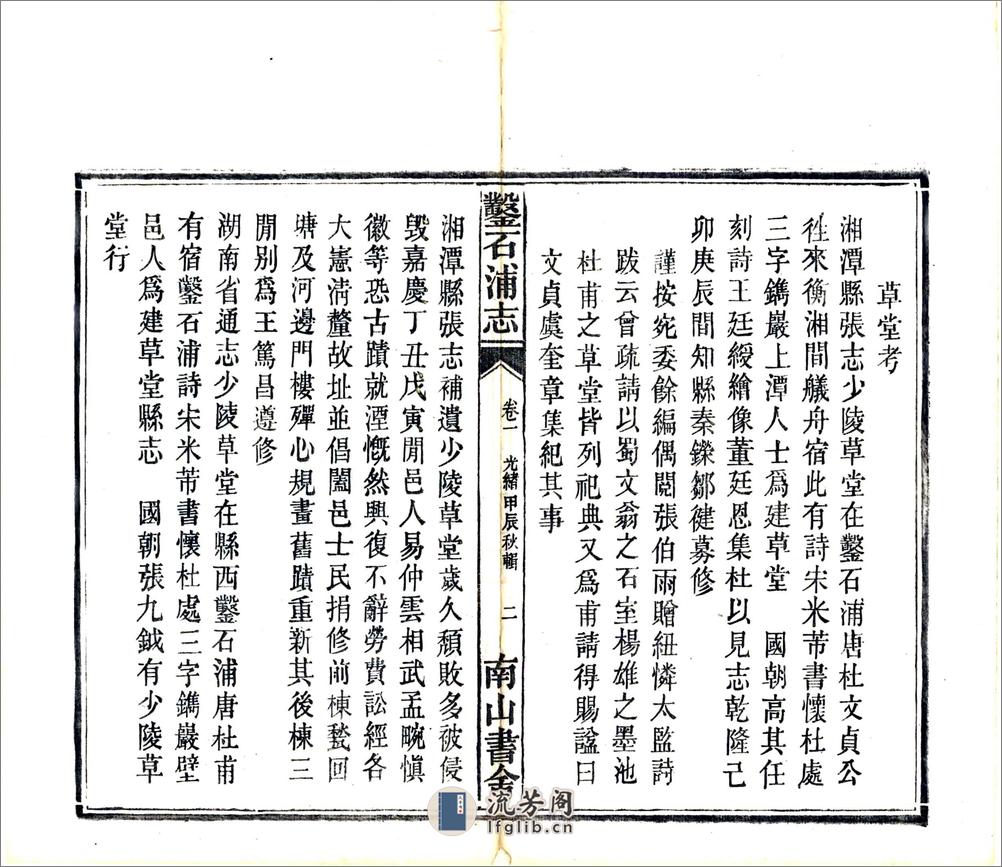 草堂考
湘潭縣張志少陵草堂在鑿石浦唐杜文貞公
徃來衡湘間艤舟宿此有詩宋米芾書懷杜處
三字鐫巖上潭人士爲建草堂　國朝高其任
刻詩王廷綬繪像董廷恩集杜以見志乾隆己
卯庚辰間知縣秦鑅鄒𢓭募修
謹按宛委餘編偶閱張伯雨贈紐憐太監詩
跋云曾疏請以蜀文翁之石室楊雄之墨池
杜甫之草堂皆列祀典又爲甫請得賜諡曰
文貞虞奎章集紀其事
鑿石浦志
卷一　光緒甲辰秋輯　二
南山書舍
湘潭縣張志補遺少陵草堂歲久頹敗多被侵
毀嘉慶丁丑戊寅閒邑人易仲雲相武孟畹愼
徽等恐古蹟就湮慨然興復不辭勞費訟經各
大憲淸釐故址並倡闔邑士民捐修前棟甃回
塘及河邊門樓殫心規畫舊蹟重新其後棟三
閒別爲王篤昌遵修
湖南省通志少陵草堂在縣西鑿石浦唐杜甫
有宿鑿石浦詩宋米芾書懷杜處三字鐫巖壁
邑人爲建草堂縣志　國朝張九鉞有少陵草
堂行
流芳阁
lfglib.cn